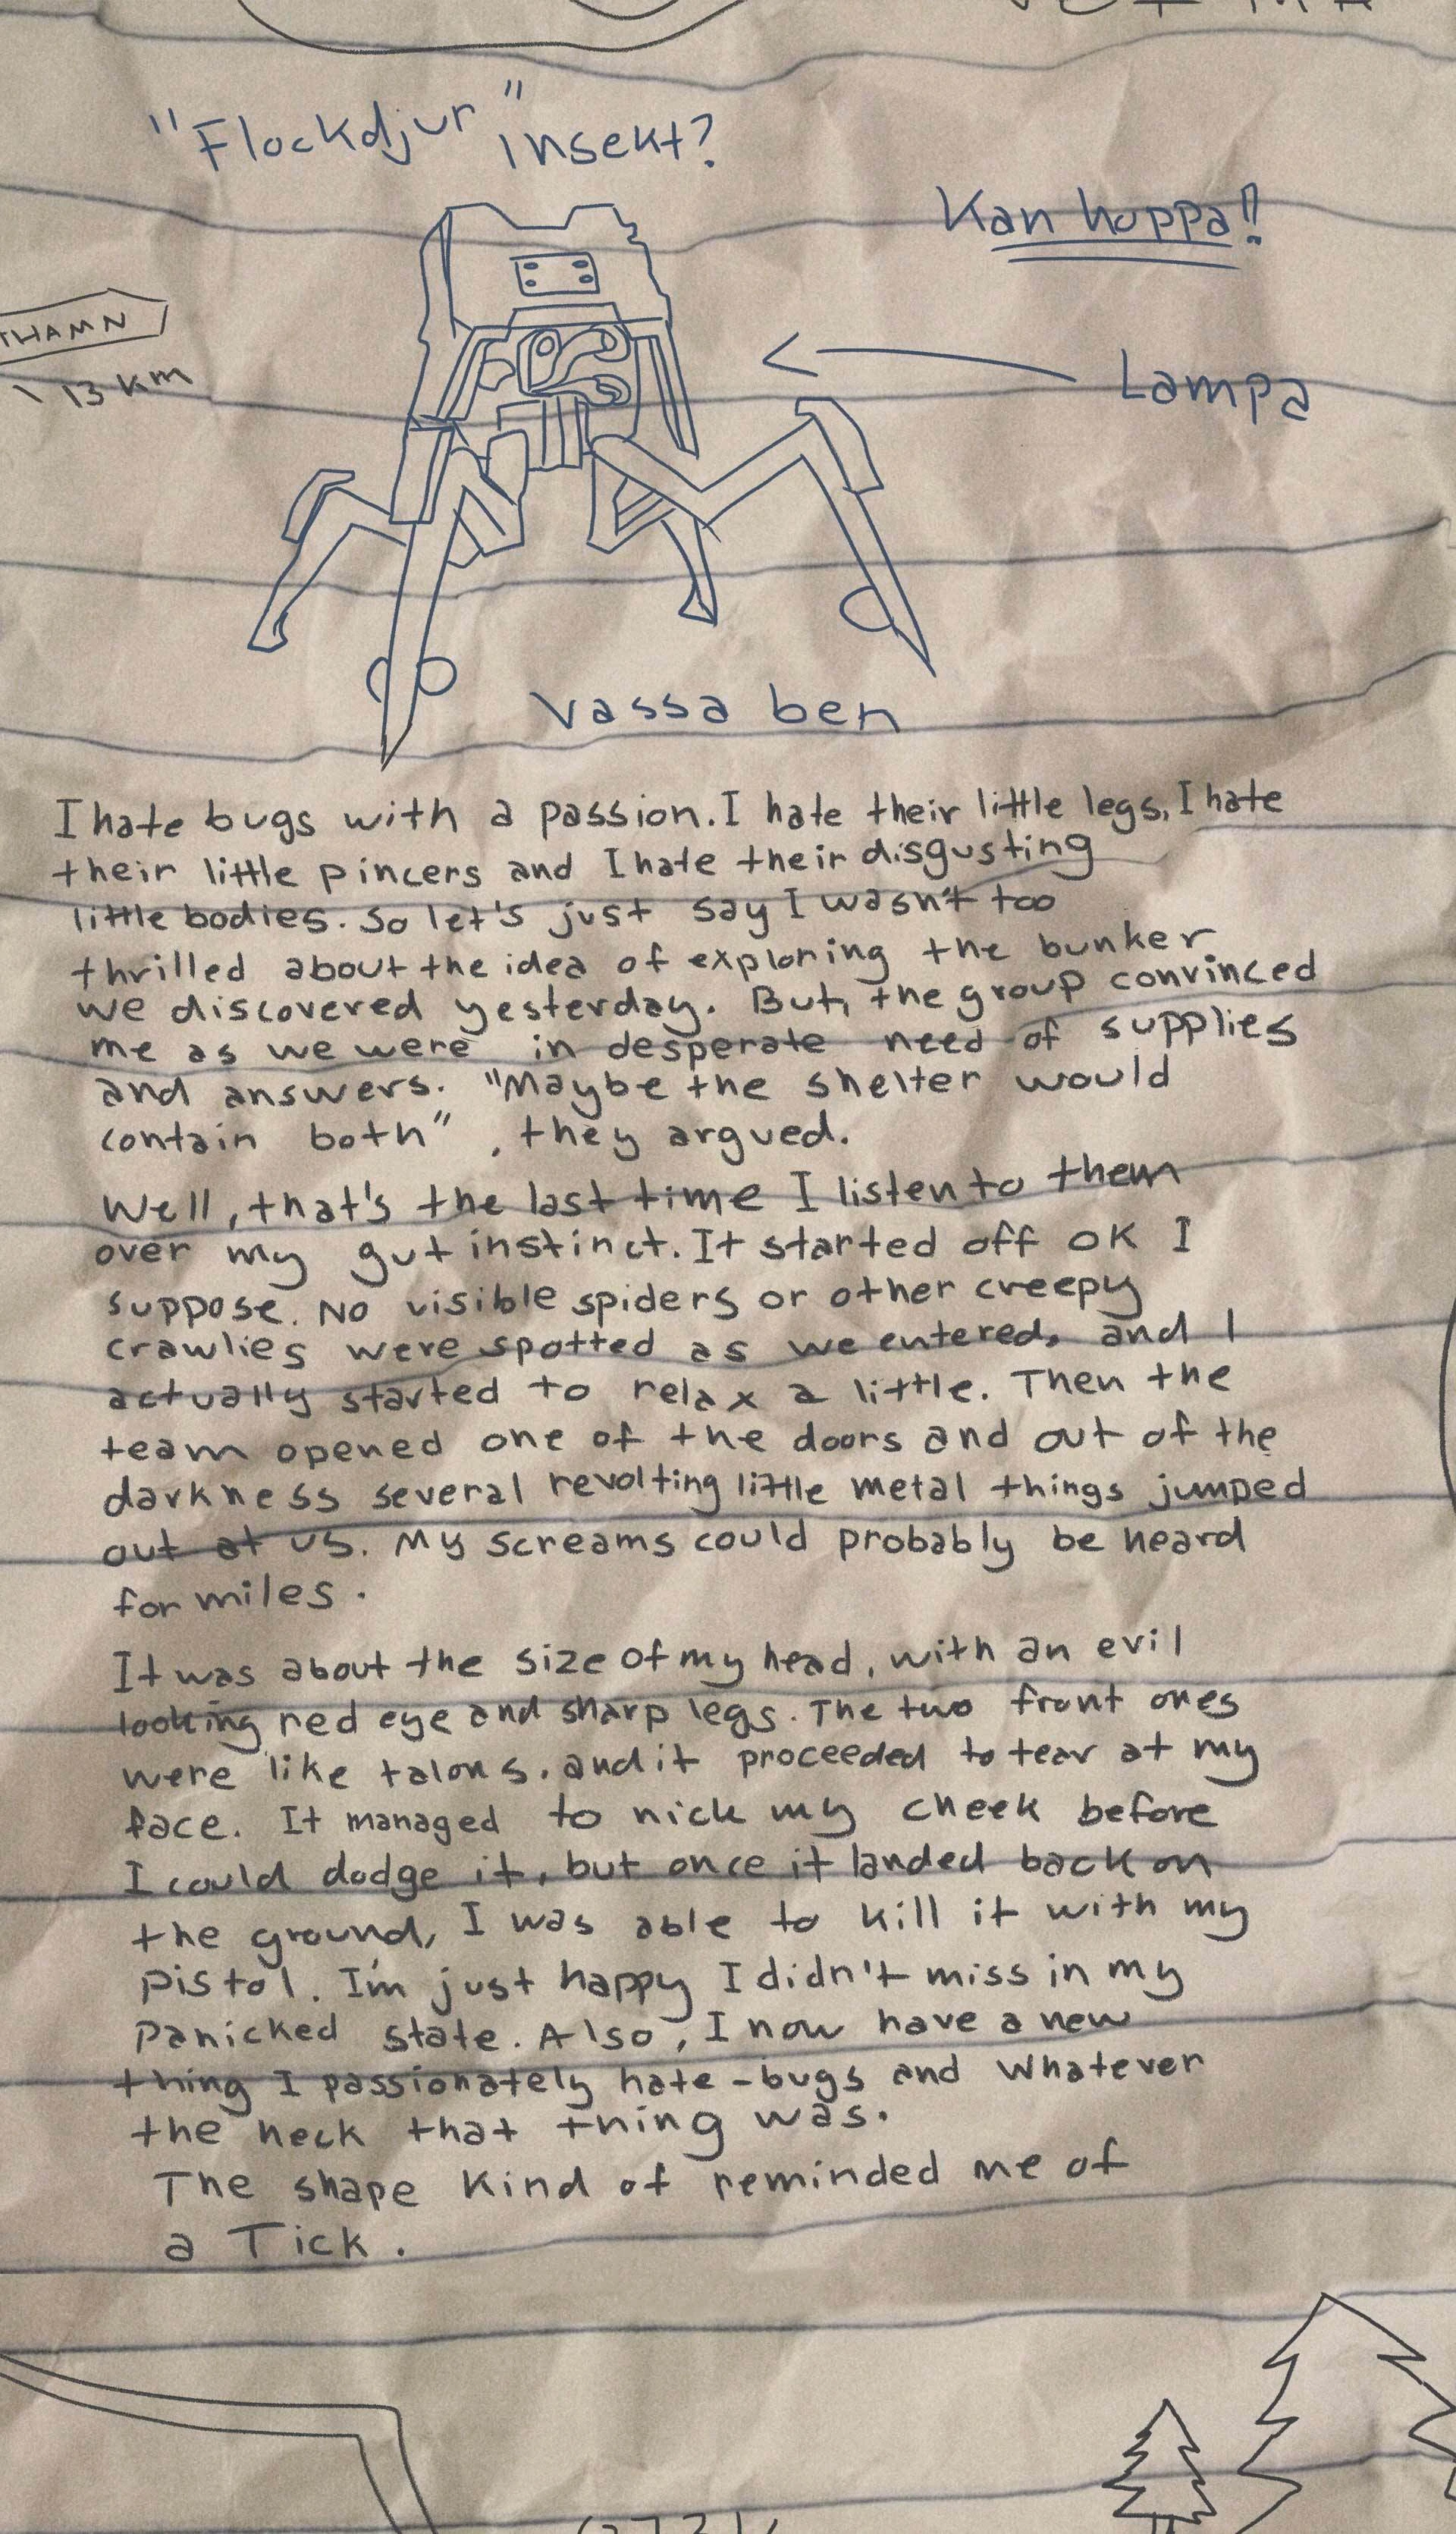 "Flockdjur" insekt?
Kan hoppa!!
THAMN
13 km
Lampa
vassa ben
I hate bugs with a passion. I hate their little legs, I hate
their little pincers and I hate their disgusting
little bodies. So let's just say I wasn't too
thrilled about the idea of exploring the bunker
we discovered yesterday. But, the group convinced
me as we were in desperate need of supplies
and answers. "Maybe the shelter would
contain both", they argued.
Well, that's the last time I listen to them
over my gut instinct. It started off OK I
suppose. No visible spiders or other creepy
crawlies were spotted as we entered, and I
actually started to relax a little. Then the
team opened one of the doors and out of the
darkness several revolting little metal things jumped
out at us. My screams could probably be heard
for miles.
It was about the size of my head, with an evil
looking red eye and sharp legs. The two front ones
were like talons, and it proceeded to tear at my
face. It managed to nick my cheek before
I could dodge it, but once it landed back on
the ground, I was able to kill it with my
pistol. I'm just happy I didn't miss in my
panicked state. Also, I now have a new
thing I passionately hate - bugs and whatever
the heck that thing was.
The shape kind of reminded me of
a Tick.